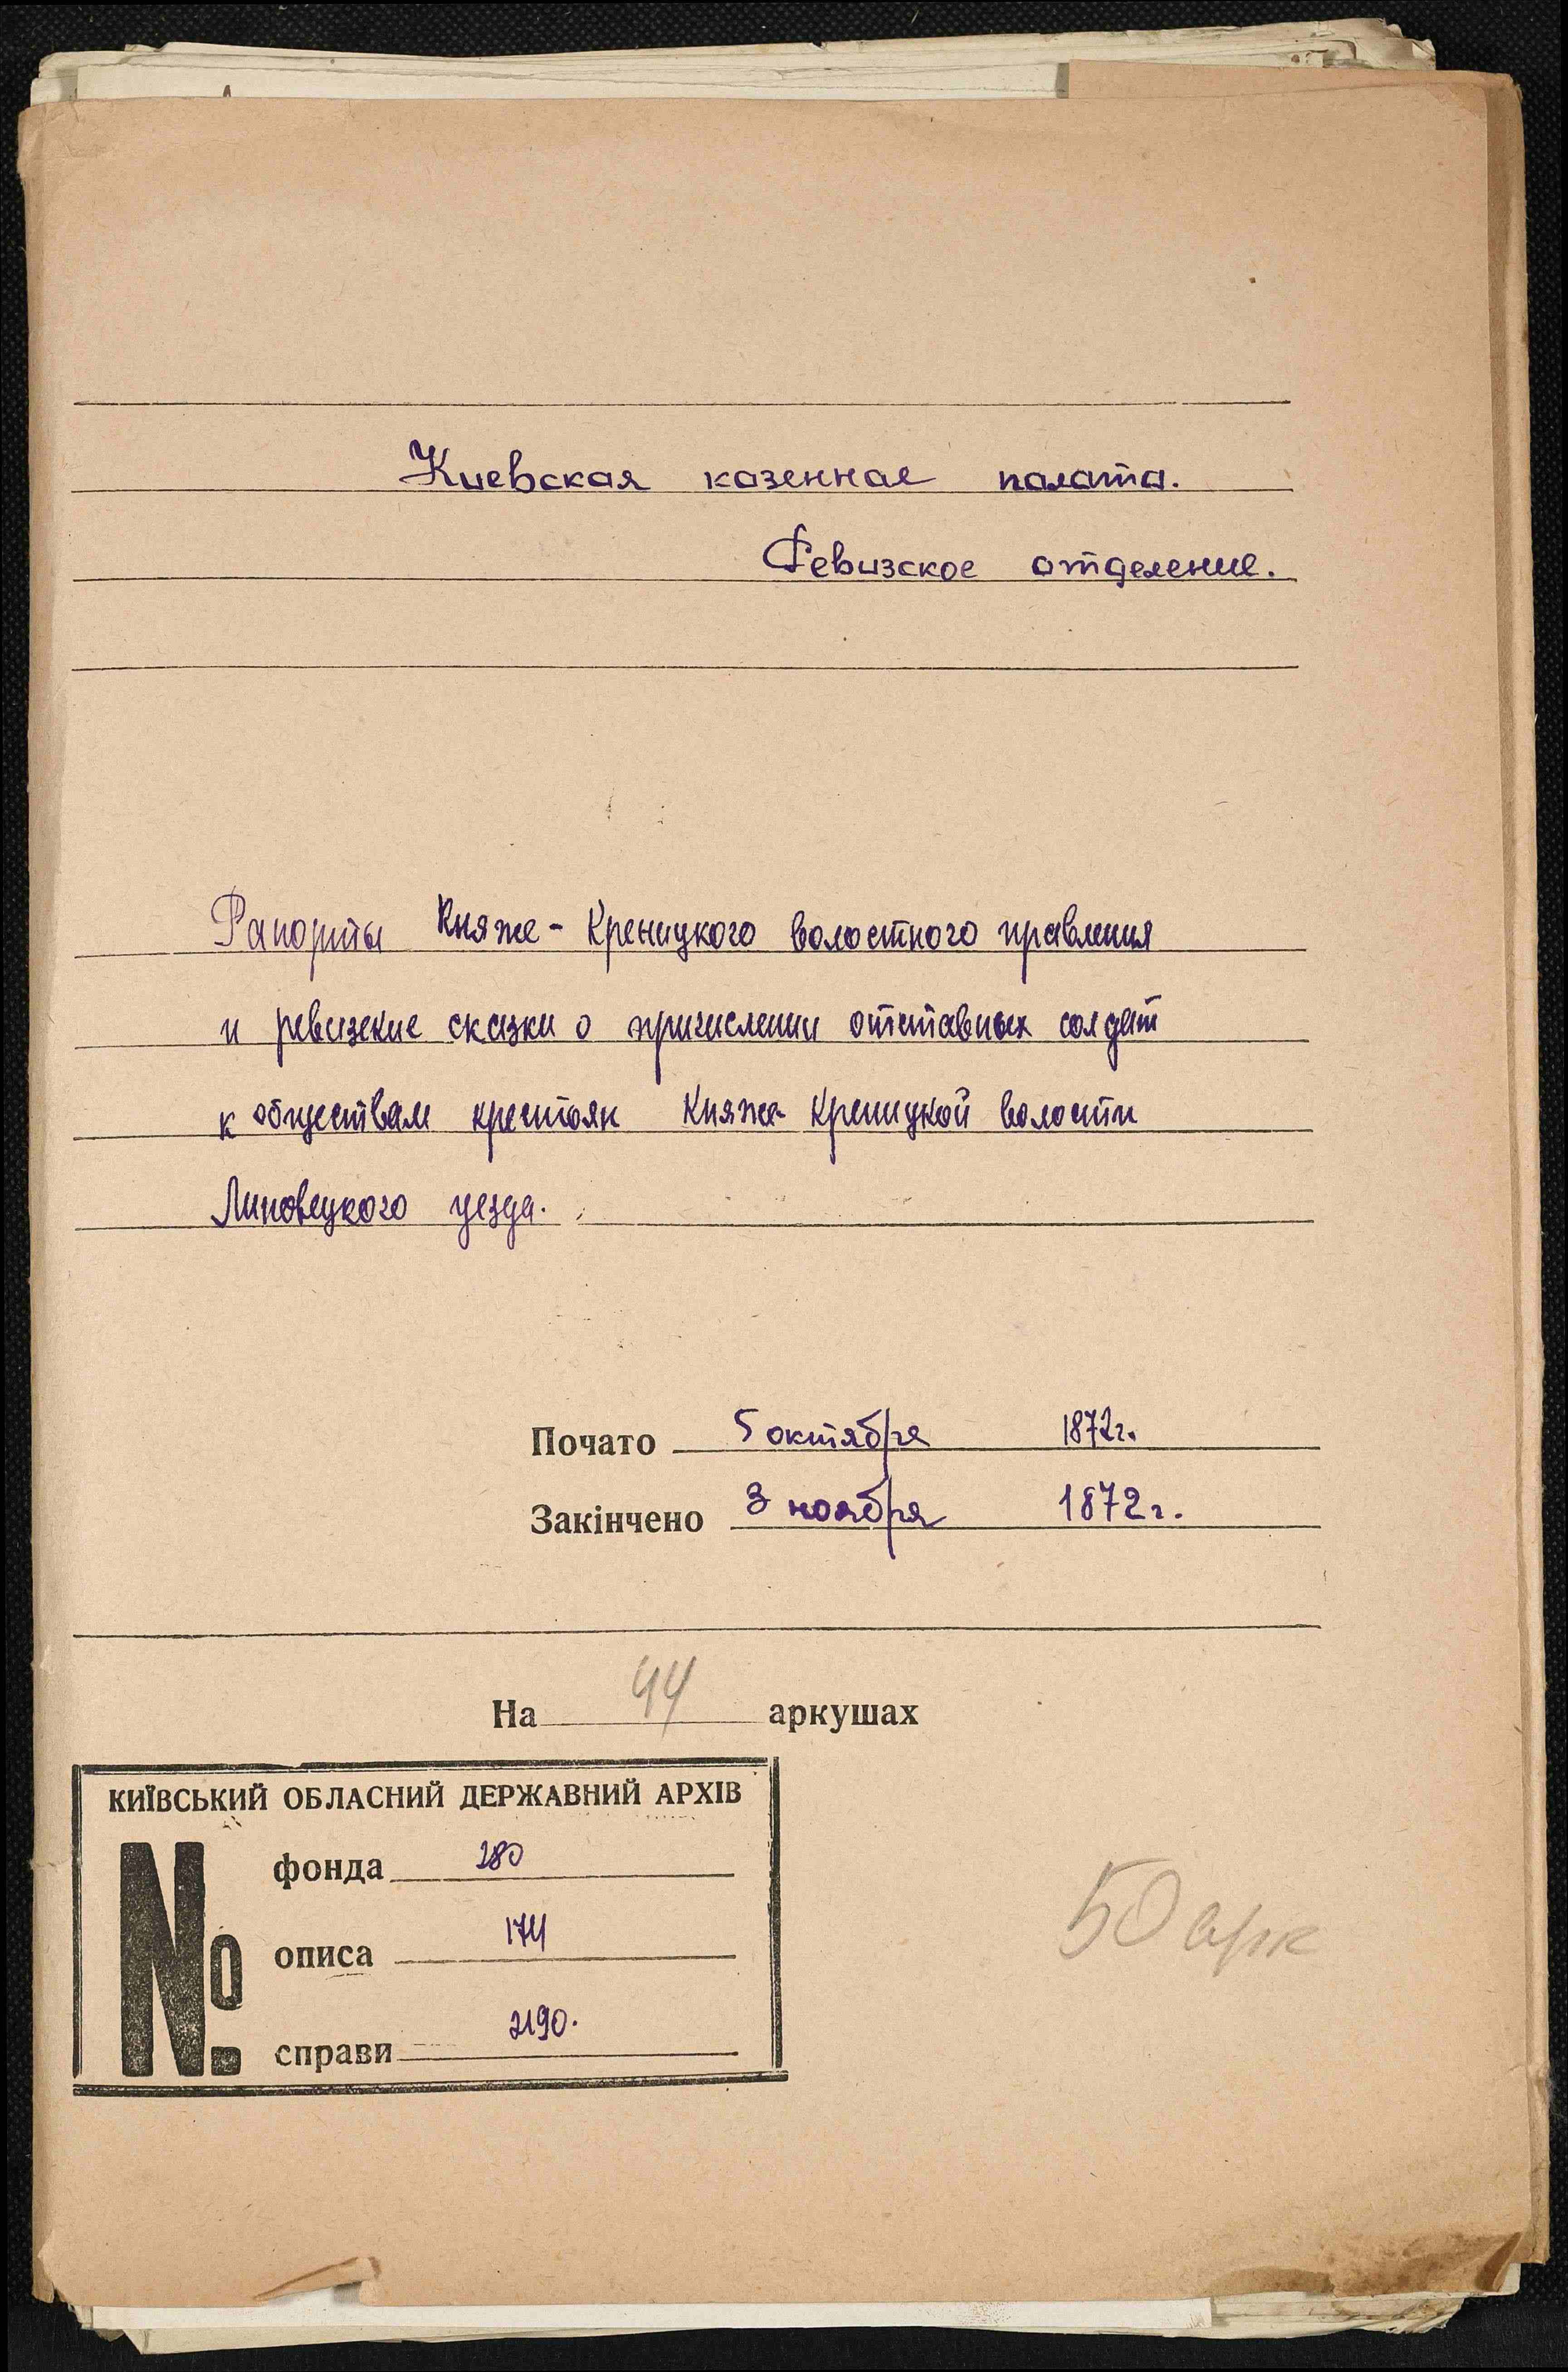 Киевская казенная палата.
Ревизское отделение.
Рапорты Княже-Креницкого волостного правления
и ревизские сказки о причислении отставных солдат
к обществам крестьян Княже-Креницкой волости
Липовецкого уезда.
Почато 5 октября 1872г.
Закінчено 3 ноября 1872г.
На 44 аркушах
КИЇВСЬКИЙ ОБЛАСНИЙ ДЕРЖАВНИЙ АРХІВ
№ фонда 280
описа 174
справи 2190.
50 арк